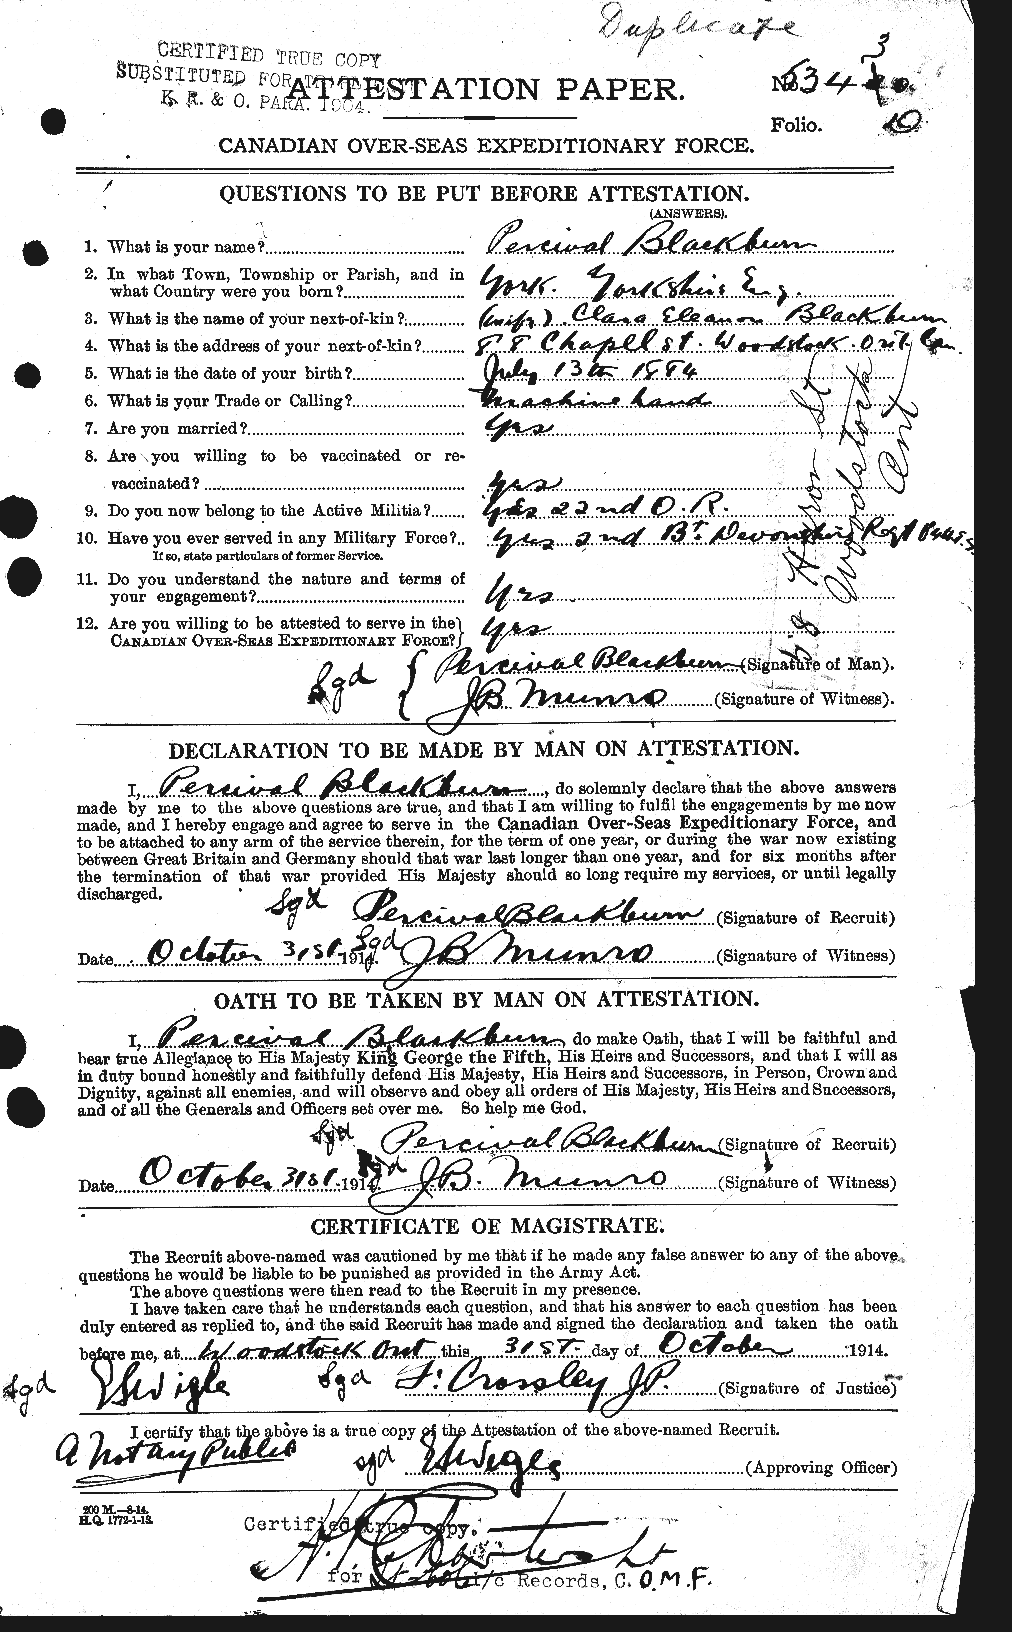 Duplicate
CERTIFIED TRUE COPY
SUBSTITUTED FOR
K. R. & O. PARA. 1904.
ATTESTATION PAPER.
No. 6343
Folio. 10
CANADIAN OVER-SEAS EXPEDITIONARY FORCE.
QUESTIONS TO BE PUT BEFORE ATTESTATION.
(ANSWERS).
1. What is your name? Percival Blackburn
2. In what Town, Township or Parish, and in
what Country were you born? York. Yorkshire Eng.
3. What is the name of your next-of-kin? (wife) Clara Eleanor Blackburn
4. What is the address of your next-of-kin? Chapell st. Woodstock Ont. Can.
5. What is the date of your birth? July 13th 1884
6. What is your Trade or Calling? Machine hand
7. Are you married? Yes
8. Are you willing to be vaccinated or re-
vaccinated? Yes
9. Do you now belong to the Active Militia? Yes 22nd O.R.
10. Have you ever served in any Military Force? Yes 2nd Bt. Devonshire Regt
If so, state particulars of former Service.
11. Do you understand the nature and terms of
your engagement? Yes
12. Are you willing to be attested to serve in the
CANADIAN OVER-SEAS EXPEDITIONARY FORCE? Yes
Huron St
Woodstock
Ont
Sgd { Percival Blackburn (Signature of Man).
J B Munro (Signature of Witness).
DECLARATION TO BE MADE BY MAN ON ATTESTATION.
I, Percival Blackburn, do solemnly declare that the above answers
made by me to the above questions are true, and that I am willing to fulfil the engagements by me now
made, and I hereby engage and agree to serve in the Canadian Over-Seas Expeditionary Force, and
to be attached to any arm of the service therein, for the term of one year, or during the war now existing
between Great Britain and Germany should that war last longer than one year, and for six months after
the termination of that war provided His Majesty should so long require my services, or until legally
discharged.
Sgd Percival Blackburn (Signature of Recruit)
Date October 31st. 1914. Sgd J B Munro (Signature of Witness)
OATH TO BE TAKEN BY MAN ON ATTESTATION.
I, Percival Blackburn, do make Oath, that I will be faithful and
bear true Allegiance to His Majesty King George the Fifth, His Heirs and Successors, and that I will as
in duty bound honestly and faithfully defend His Majesty, His Heirs and Successors, in Person, Crown and
Dignity, against all enemies, and will observe and obey all orders of His Majesty, His Heirs and Successors,
and of all the Generals and Officers set over me. So help me God.
Sgd Percival Blackburn (Signature of Recruit)
Date October 31st. 1914 Sgd J B. Munro (Signature of Witness)
CERTIFICATE OF MAGISTRATE.
The Recruit above-named was cautioned by me that if he made any false answer to any of the above
questions he would be liable to be punished as provided in the Army Act.
The above questions were then read to the Recruit in my presence.
I have taken care that he understands each question, and that his answer to each question has been
duly entered as replied to, and the said Recruit has made and signed the declaration and taken the oath
before me, at Woodstock Ont this 31st. day of October 1914.
Sgd ESwigle Sgd F. Crossley J.P. (Signature of Justice)
I certify that the above is a true copy of the Attestation of the above-named Recruit.
A Notary Public
sgd ESwigle (Approving Officer)
200 M.—8-14.
H.Q. 1772-1-13.
Certified true copy.
for i/c Records, C.O.M.F.